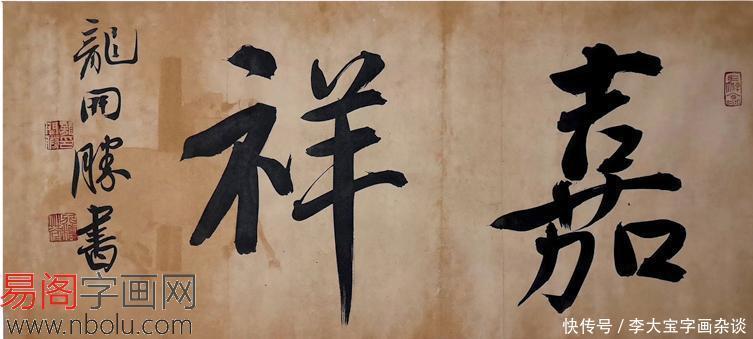 嘉祥
龍開勝書
易阁字画网
www.nbolu.com
快传号/李大宝字画杂谈